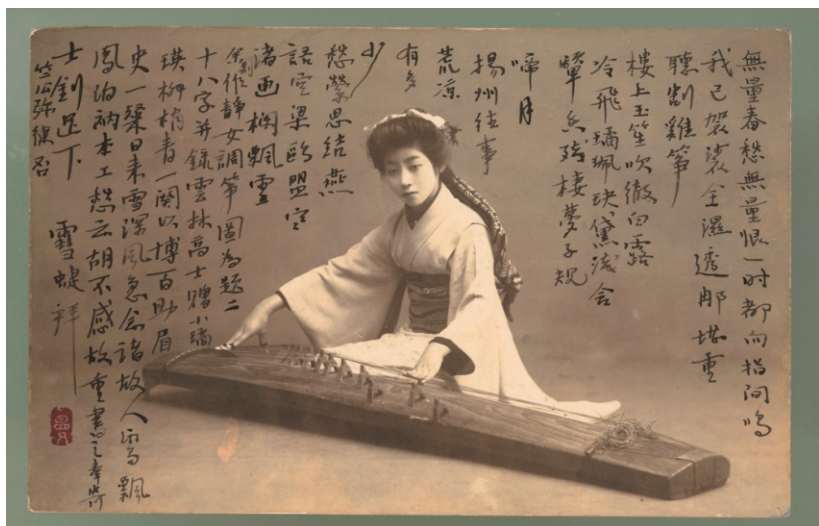 無量春愁無量恨一时都向指间鳴
我已袈裟全濕透那堪重
聽割雞箏
樓上玉笙吹徹白露
冷飛璚珮玦黛淺含
顰香殘棲夢子規
啼月
揚州往事
荒凉
有多
少
愁縈思結燕
語空梁鷗盟空
渚画欄飄雪
作靜女調箏圖為題二
十八字并錄雲林高士贈小璚
瑛柳梢青一闋以博百助眉
史一粲日來雪深風急念諸故人鸾飄
鳳泊衲本工愁云胡不感故重書之奉寄
士釗足下
雪蜨拜